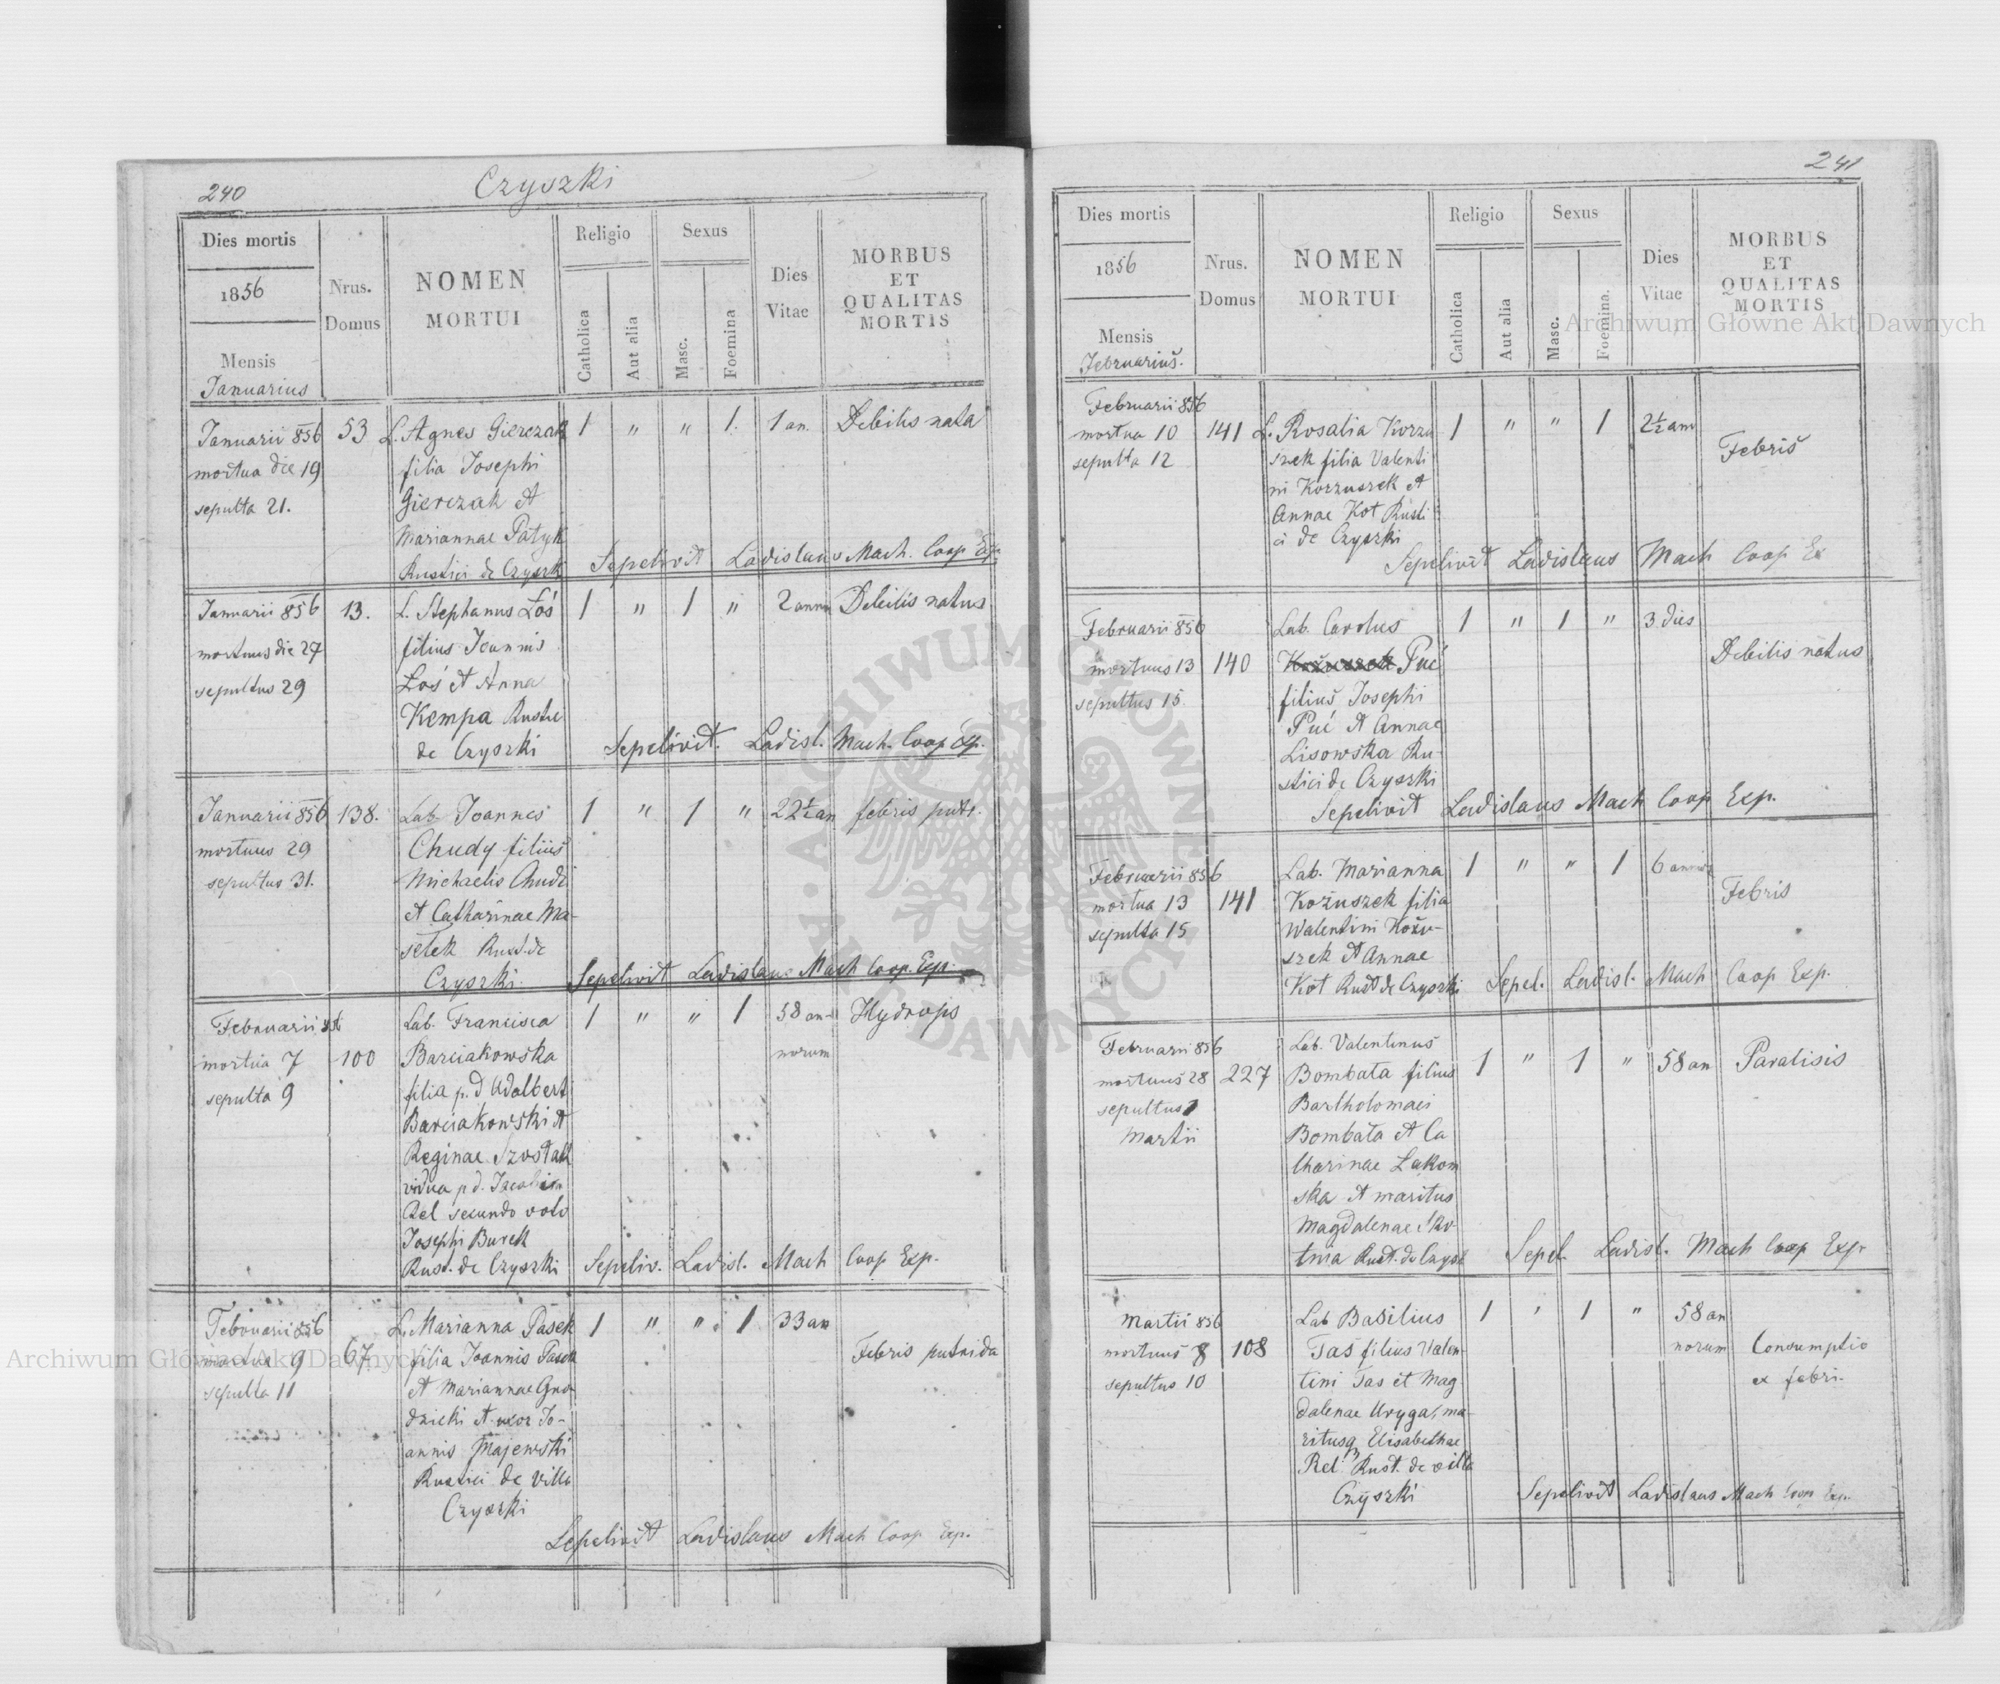 240
Czyszki
Dies mortis
1856
Mensis
Januarius
Nrus.
Domus
NOMEN
MORTUI
Religio
Catholica
Aut alia
Sexus
Masc.
Foemina
Dies
Vitae
MORBUS
ET
QUALITAS
MORTIS
Januarii 856
mortua die 19
sepulta 21.
53
L. Agnes Gierczak
filia Josephi
Gierczak et
Mariannae Patyk
Rustici de Czyszki
1 " " 1. 1 an.
Debilis nata
Sepelivit Ladislaus Mach. Coop Exp.
Januarii 856
mortuus die 27
sepultus 29
13.
L. Stephanus Łoś
filius Joannis
Łoś et Anna
Kempa
de Czyszki
1 " 1 "
Debilis natus
Sepelivit. Ladisl. Mach. Coop Exp.
Januarii 856
mortuus 29
sepultus 31.
138.
Lab. Joannes
Chudy filius
Michaelis Chudi
et Catharinae Ma-
selek Rust. de
Czyszki.
1 " 1 " 22½ an
febris putr.
Sepelivit Ladislaus Mach Coop. Exp.
Februarii 856
mortua 7
sepulta 9
100
Lab. Francisca
Barciakowska
filia p. d Adalbert
Barciakowski et
Reginae Szostak
vidua p d.
Rel secundo voto
Josephi Burek
Rust. de Czyszki
1 " " 1 58 an-
norum
Hydrops
Sepeliv. Ladisl. Mach Coop Exp.
Februarii 856
mortua 9
sepulta 11
67
L. Marianna Pasek
filia Joannis Pasek
et Mariannae Gro-
dzicki et uxor Jo-
annis Majewski
Rustici de villa
Czyszki
1 " " 1 33 an
Febris putrida
Sepelivit Ladislaus Mach Coop Exp.
241
Dies mortis
1856
Mensis
Februarius.
Nrus.
Domus
NOMEN
MORTUI
Religio
Catholica
Aut alia
Sexus
Masc.
Foemina.
Dies
Vitae
MORBUS
ET
QUALITAS
MORTIS
Februarii 856
mortua 10
sepulta 12
141
L. Rosalia Korzu-
szek filia Valenti
ni Korzuszek et
Annae Kot Rusti
ci de Czyszki
1 " " 1 2½ ann
Febris
Sepelivit Ladislaus Mach Coop Ex
Februarii 856
mortuus 13
sepultus 15
140
Lab. Carolus
Puć
filius Josephi
Puć et Annae
Lisowska Ru-
stici de Czyszki
1 " 1 " 3 dies
Debilis natus
Sepelivit Ladislaus Mach Coop Exp.
Februarii 856
mortua 13
sepulta 15
141
Lab. Marianna
Kożuszek filia
Walentini Kożu-
szek et Annae
Kot Rust de Czyszki
1 " " 1
Febris
Sepel. Ladisl. Mach Coop Exp.
Februarii 856
mortuus 28
sepultus 1
Martii
227
Lab. Valentinus
Bombała filius
Bartholomaei
Bombała et Ca
tharinae Lakom
ska et maritus
Magdalenae
Rust. de Czysz
1 " 1 " 58 an
Paralisis
Sepel. Ladisl. Mach Coop Exp
Martii 856
mortuus 8
sepultus 10
108
Lab Basilius
Tas filius Valen-
tini Tas et Mag
dalenae Uryga, ma-
ritusq Elisabethae
Rel Rust. de villa
Czyszki
1 ' 1 " 58 an
norum
Consumptio
ex febri.
Sepelivit Ladislaus Mach Coop Exp.
Archiwum Główne Akt Dawnych
Archiwum Główne Akt Dawnych
ARCHIWUM GŁÓWNE AKT DAWNYCH